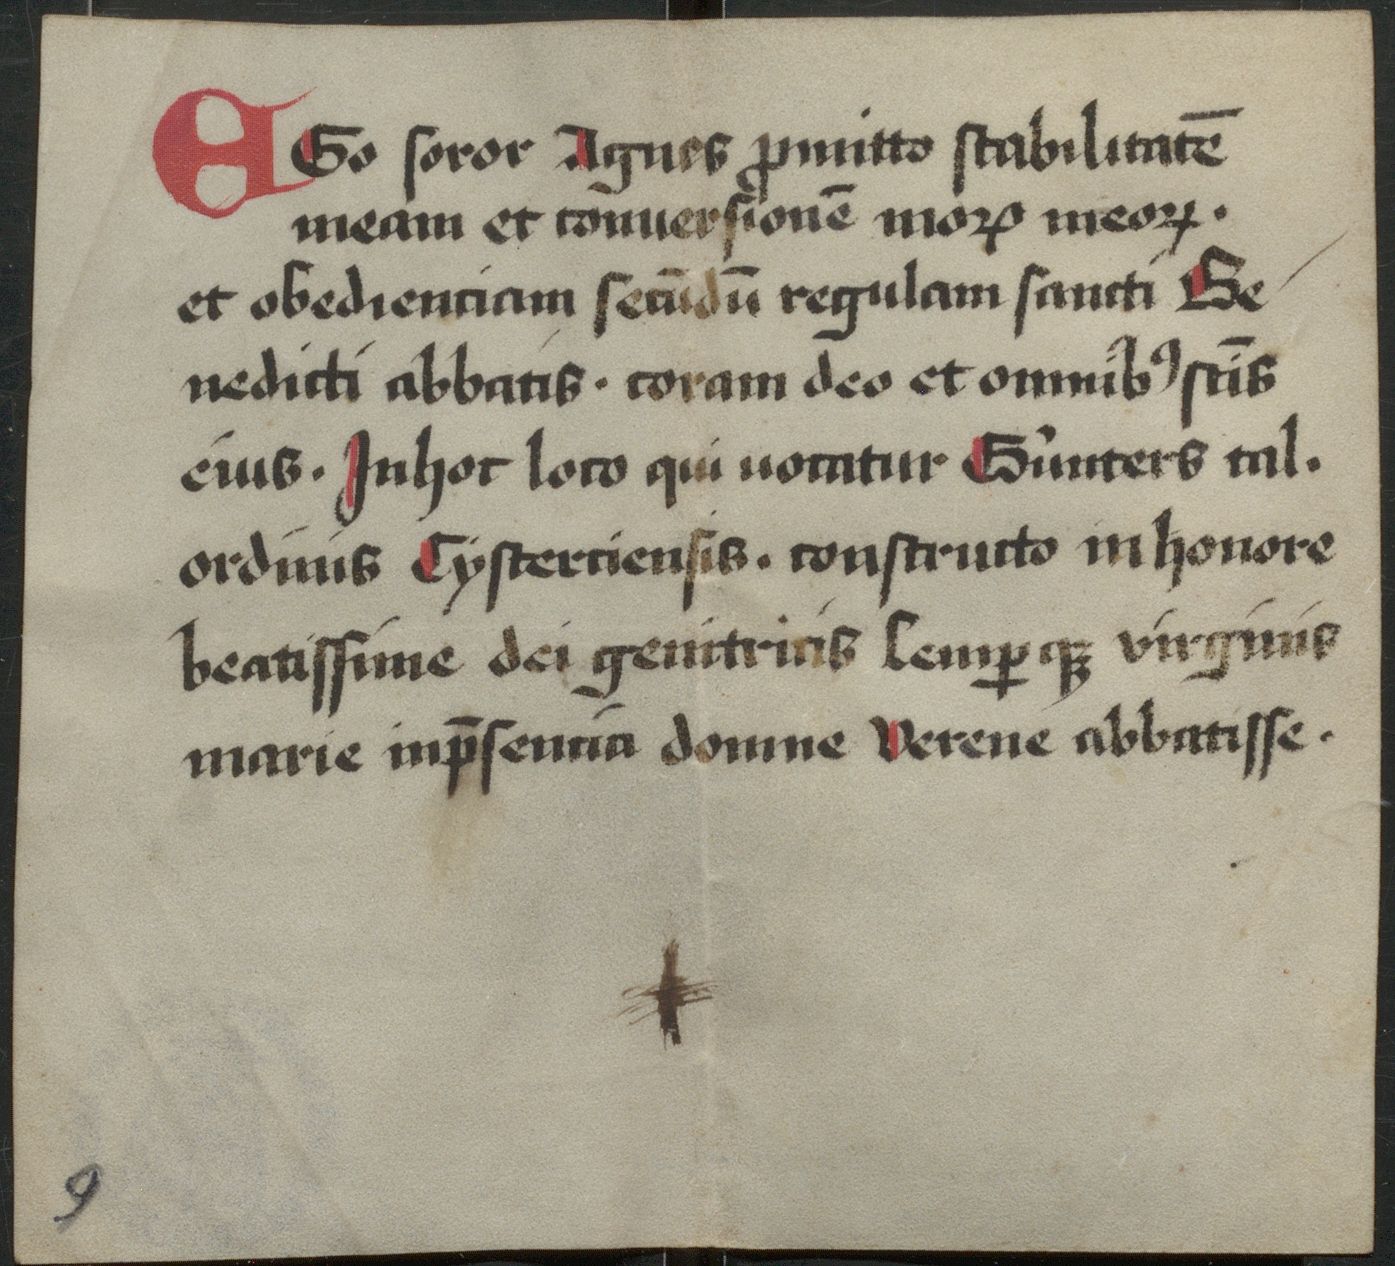 EGo soror Agnes ꝓmitto stabilitatē
meam et cōnuersionē moꝝ meoꝝ.
et obedienciam secūdū regulam sancti Be
nedicti abbatis. coram deo et omnibꝰ sctīs
eius. In hoc loco qui uocatur Gùnters tal.
ordinis Cysterciensis. constructo in honore
beatissime dei genitricis semꝑqꝫ virginis
marie in p̄sencia domne Verene abbatisse.
9